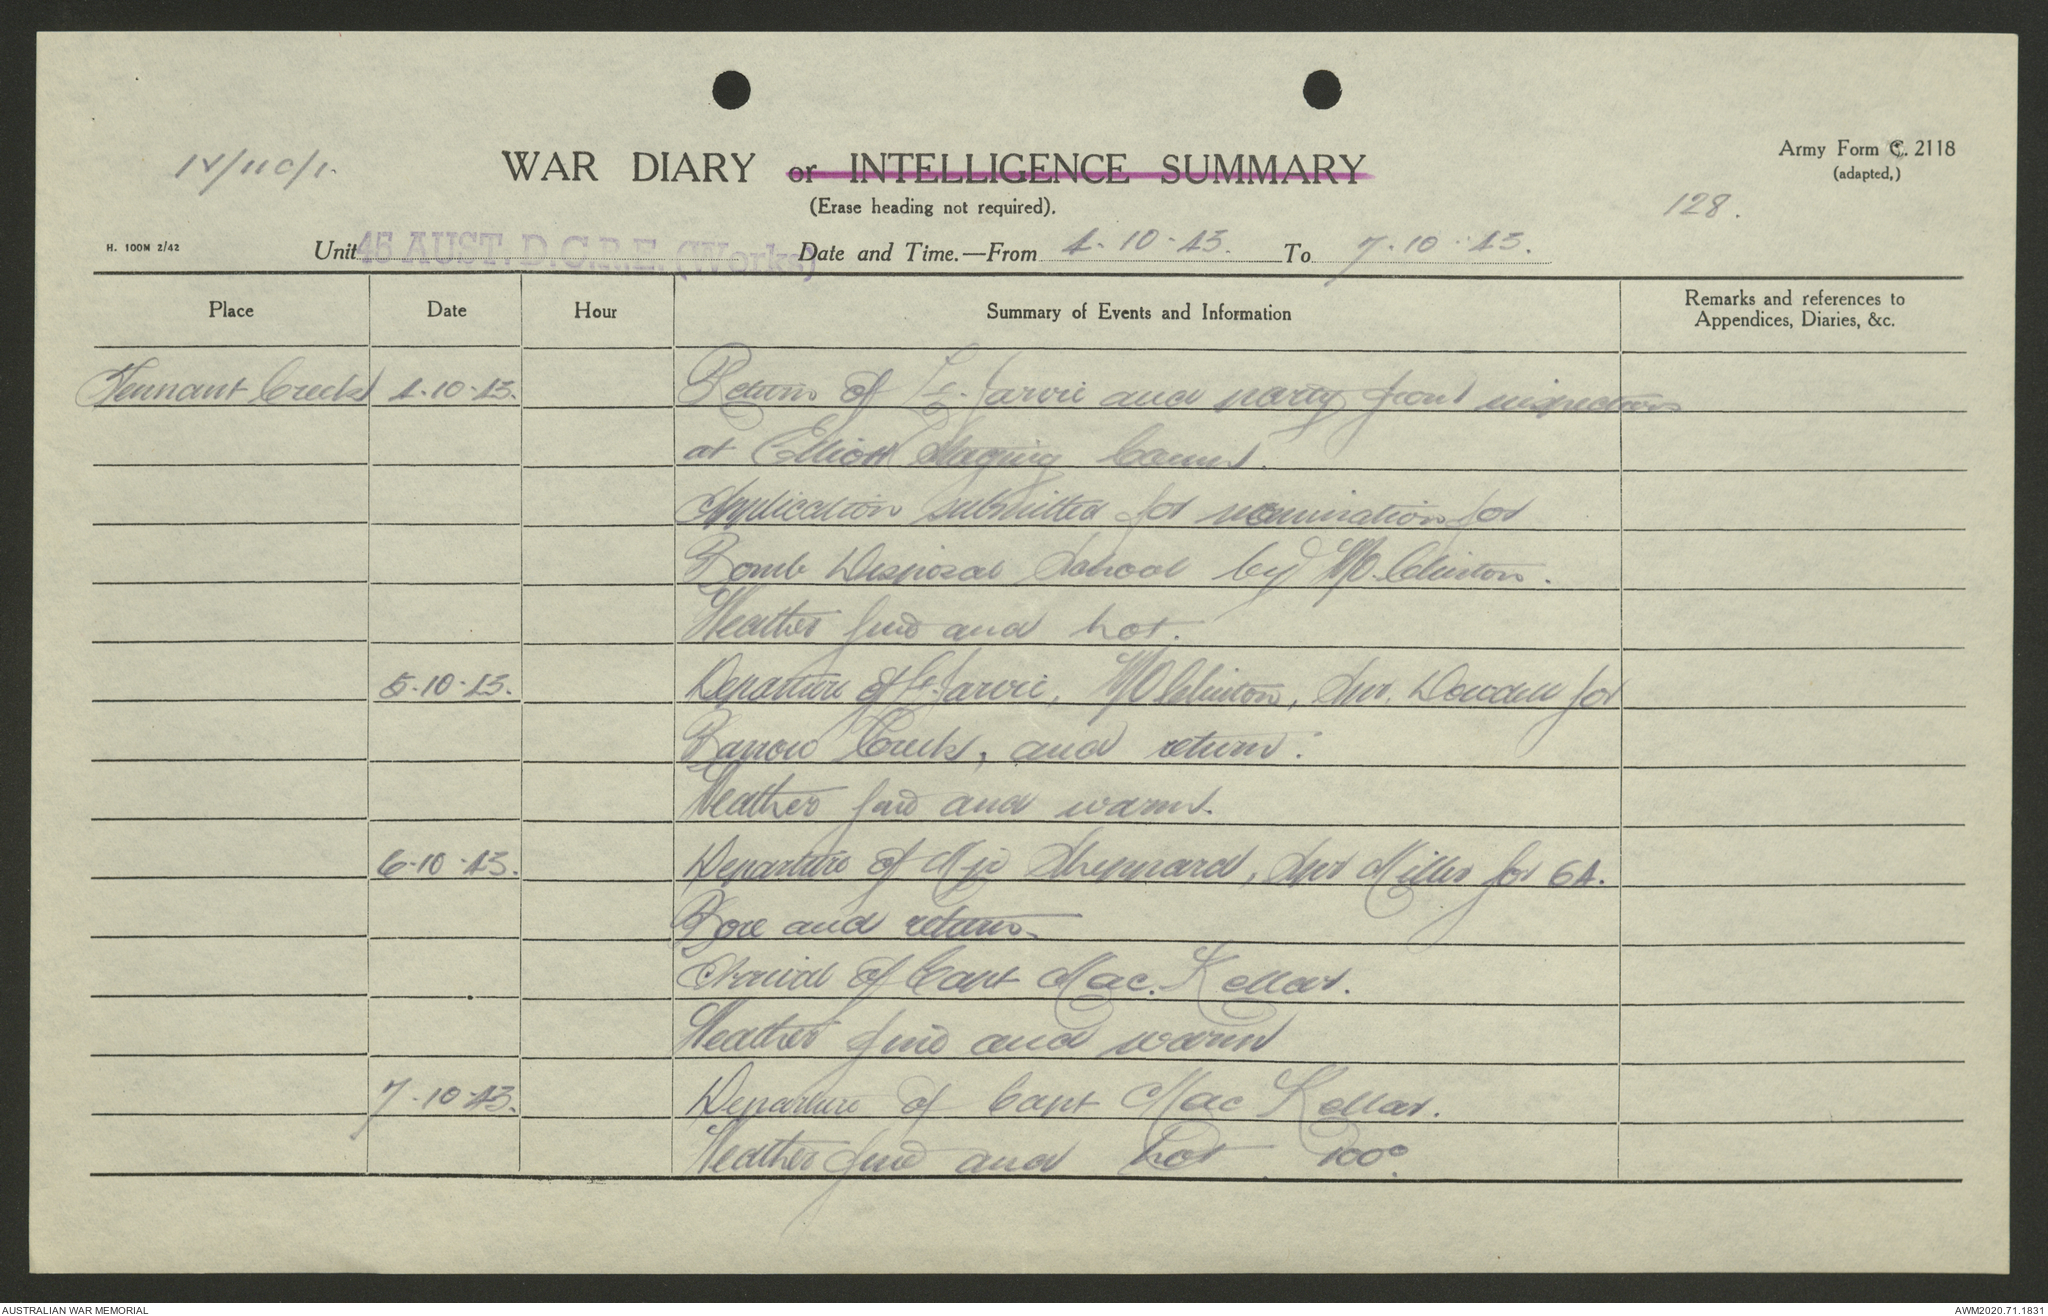 IV/110/1.
WAR DIARY or INTELLIGENCE SUMMARY
(Erase heading not required).
Army Form C. 2118
(adapted,)
128.
H. 100M 2/42
Unit 45 AUST. D.C.R.E. (Works) Date and Time.—From 4-10-43. To 7-10-43.
Place Date Hour Summary of Events and Information Remarks and references to
Appendices, Diaries, &c.
Tennant Creek 4-10-43. Return of Lt. Jarvie and party from inspection
at Elliott Staging Camp.
Application submitted for nomination for
Bomb Disposal School by W/O. Clinton.
Weather fine and hot.
5-10-43. Departure of Lt. Jarvie, W/O Clinton, Spr. Dowdell for
Barrow Creek, and return.
Weather fine and warm.
6-10-43. Departure of Maj Sheppard, Spr Miller for 64.
Bore and return.
Arrival of Capt Mac. Kellar.
Weather fine and warm
7-10-43. Departure of Capt Mac Kellar.
Weather fine and hot 100°.
AUSTRALIAN WAR MEMORIAL
AWM2020.71.1831